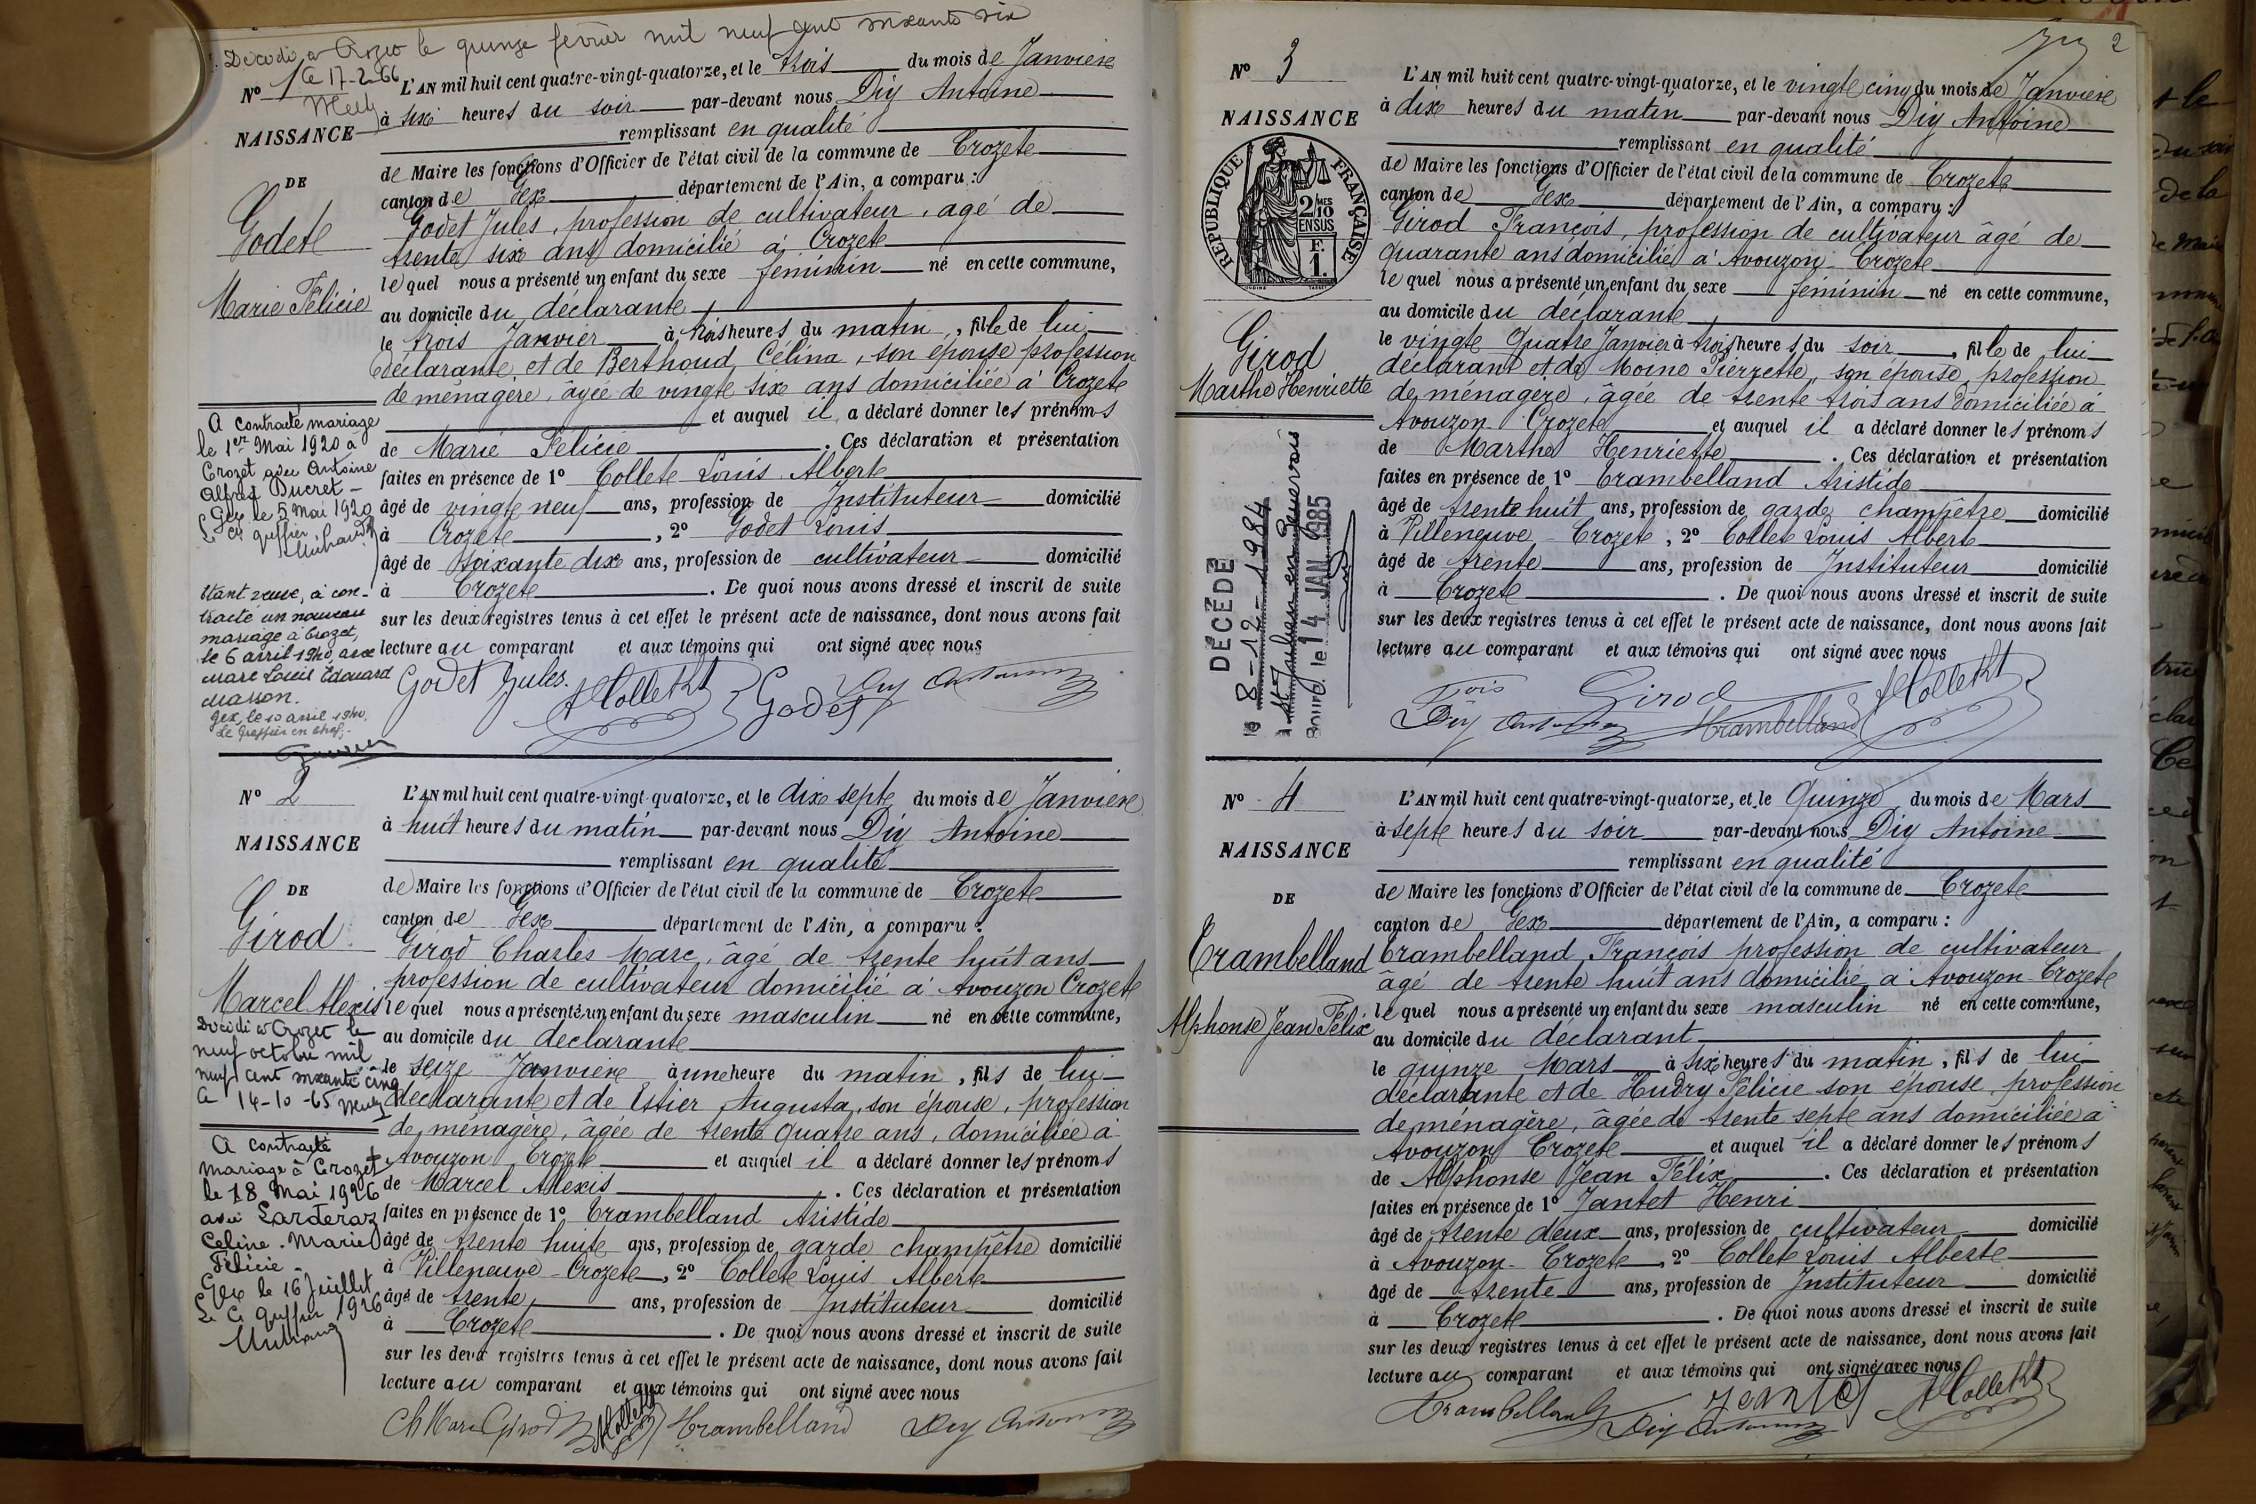 Décédé à Crozet le quinze février mil neuf cent soixante six
le 17-2-66
N° 1
NAISSANCE
DE
Godet
Marie Félicie
A contracté mariage
le 1er Mai 1920 à
Crozet avec Antoine
Alfred Ducret -
Gex le 5 Mai 1920
Le Cs greffier
Etant veuve, a con-
tracté un nouveau
mariage à Crozet,
le 6 avril 1940, avec
Marc Louis Edouard
Masson.
Gex, le 10 avril 1940.
Le Greffier en chef,
L'AN mil huit cent quatre-vingt-quatorze, et le trois du mois de Janvier
à six heures du soir par-devant nous Diy Antoine
remplissant en qualité
de Maire les fonctions d'Officier de l'état civil de la commune de Crozet
canton de Gex département de l'Ain, a comparu :
Godet Jules, profession de cultivateur, agé de
trente six ans domicilié à Crozet
lequel nous a présenté un enfant du sexe féminin né en cette commune,
au domicile du déclarant
le trois Janvier à trois heures du matin, fille de lui
déclarant et de Berthoud Célina, son épouse profession
de ménagère, âgée de vingt six ans domiciliée à Crozet
et auquel il a déclaré donner les prénoms
de Marie Félicie. Ces déclaration et présentation
faites en présence de 1° Collet Louis Albert
âgé de vingt neuf ans, profession de Instituteur domicilié
à Crozet, 2° Godet Louis
âgé de soixante dix ans, profession de cultivateur domicilié
à Crozet. De quoi nous avons dressé et inscrit de suite
sur les deux registres tenus à cet effet le présent acte de naissance, dont nous avons fait
lecture au comparant et aux témoins qui ont signé avec nous
Godet Jules. A Collet Godet Diy Antoine
N° 2
NAISSANCE
DE
Girod
Marcel Alexis
Décédé à Crozet le
neuf octobre mil
neuf cent soixante cinq
le 14-10-65
A contracté
mariage à Crozet
le 18 Mai 1926
avec Larderaz
Celine-Marie
Félicie -
Gex le 16 Juillet
Le Cs greffier 1926
L'AN mil huit cent quatre-vingt-quatorze, et le dix sept du mois de Janvier
à huit heures du matin par-devant nous Diy Antoine
remplissant en qualité
de Maire les fonctions d'Officier de l'état civil de la commune de Crozet
canton de Gex département de l'Ain, a comparu :
Girod Charles Marc, âgé de trente huit ans
profession de cultivateur domicilié à Avouzon Crozet
lequel nous a présenté un enfant du sexe masculin né en cette commune,
au domicile du déclarant
le seize Janvier à une heure du matin, fils de lui
déclarant et de Estier Augusta, son épouse, profession
de ménagère, âgée de trente quatre ans, domiciliée à
Avouzon Crozet et auquel il a déclaré donner les prénoms
de Marcel Alexis. Ces déclaration et présentation
faites en présence de 1° Crambelland Aristide
âgé de trente huit ans, profession de garde champêtre domicilié
à Villeneuve - Crozet, 2° Collet Louis Albert
âgé de trente ans, profession de Instituteur domicilié
à Crozet. De quoi nous avons dressé et inscrit de suite
sur les deux registres tenus à cet effet le présent acte de naissance, dont nous avons fait
lecture au comparant et aux témoins qui ont signé avec nous
Ch Marc Girod A Collet Crambelland Diy Antoine
2
N° 3
NAISSANCE
RÉPUBLIQUE FRANÇAISE
2/10 MES
EN SUS
F.
1.
Girod
Marthe Henriette
DÉCÉDÉ
le 8-12-1984
à St Julien en Genevois
Bourg, le 14 JAN 1985
L'AN mil huit cent quatre-vingt-quatorze, et le vingt cinq du mois de Janvier
à dix heures du matin par-devant nous Diy Antoine
remplissant en qualité
de Maire les fonctions d'Officier de l'état civil de la commune de Crozet
canton de Gex département de l'Ain, a comparu :
Girod François, profession de cultivateur âgé de
quarante ans domicilié à Avouzon Crozet
lequel nous a présenté un enfant du sexe féminin né en cette commune,
au domicile du déclarant
le vingt quatre Janvier à trois heures du soir, fille de lui
déclarant et de Moine Pierrette, son épouse, profession
de ménagère, âgée de trente trois ans domiciliée à
Avouzon Crozet et auquel il a déclaré donner les prénoms
de Marthe Henriette. Ces déclaration et présentation
faites en présence de 1° Crambelland Aristide
âgé de trente huit ans, profession de garde champêtre domicilié
à Villeneuve - Crozet, 2° Collet Louis Albert
âgé de trente ans, profession de Instituteur domicilié
à Crozet. De quoi nous avons dressé et inscrit de suite
sur les deux registres tenus à cet effet le présent acte de naissance, dont nous avons fait
lecture au comparant et aux témoins qui ont signé avec nous
Girod A Collet
Diy Antoine Crambelland
N° 4
NAISSANCE
DE
Crambelland
Alphonse Jean Félix
L'AN mil huit cent quatre-vingt-quatorze, et le Quinze du mois de Mars
à sept heures du soir par-devant nous Diy Antoine
remplissant en qualité
de Maire les fonctions d'Officier de l'état civil de la commune de Crozet
canton de Gex département de l'Ain, a comparu :
Crambelland François profession de cultivateur
âgé de trente huit ans domicilié à Avouzon Crozet
lequel nous a présenté un enfant du sexe masculin né en cette commune,
au domicile du déclarant
le quinze Mars à six heures du matin, fils de lui
déclarant et de Hudry Félicie son épouse, profession
de ménagère, âgée de trente sept ans domiciliée à
Avouzon Crozet et auquel il a déclaré donner les prénoms
de Alphonse Jean Félix. Ces déclaration et présentation
faites en présence de 1° Jantet Henri
âgé de trente deux ans, profession de cultivateur domicilié
à Avouzon - Crozet, 2° Collet Louis Albert
âgé de trente ans, profession de Instituteur domicilié
à Crozet. De quoi nous avons dressé et inscrit de suite
sur les deux registres tenus à cet effet le présent acte de naissance, dont nous avons fait
lecture au comparant et aux témoins qui ont signé avec nous
Crambelland Diy Antoine Jantet A Collet